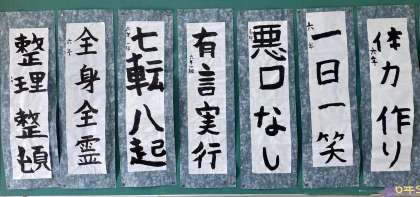 体力作り
六年
一日一笑
六年
悪口なし
有言実行
七転八起
全身全霊
六年
整理整頓